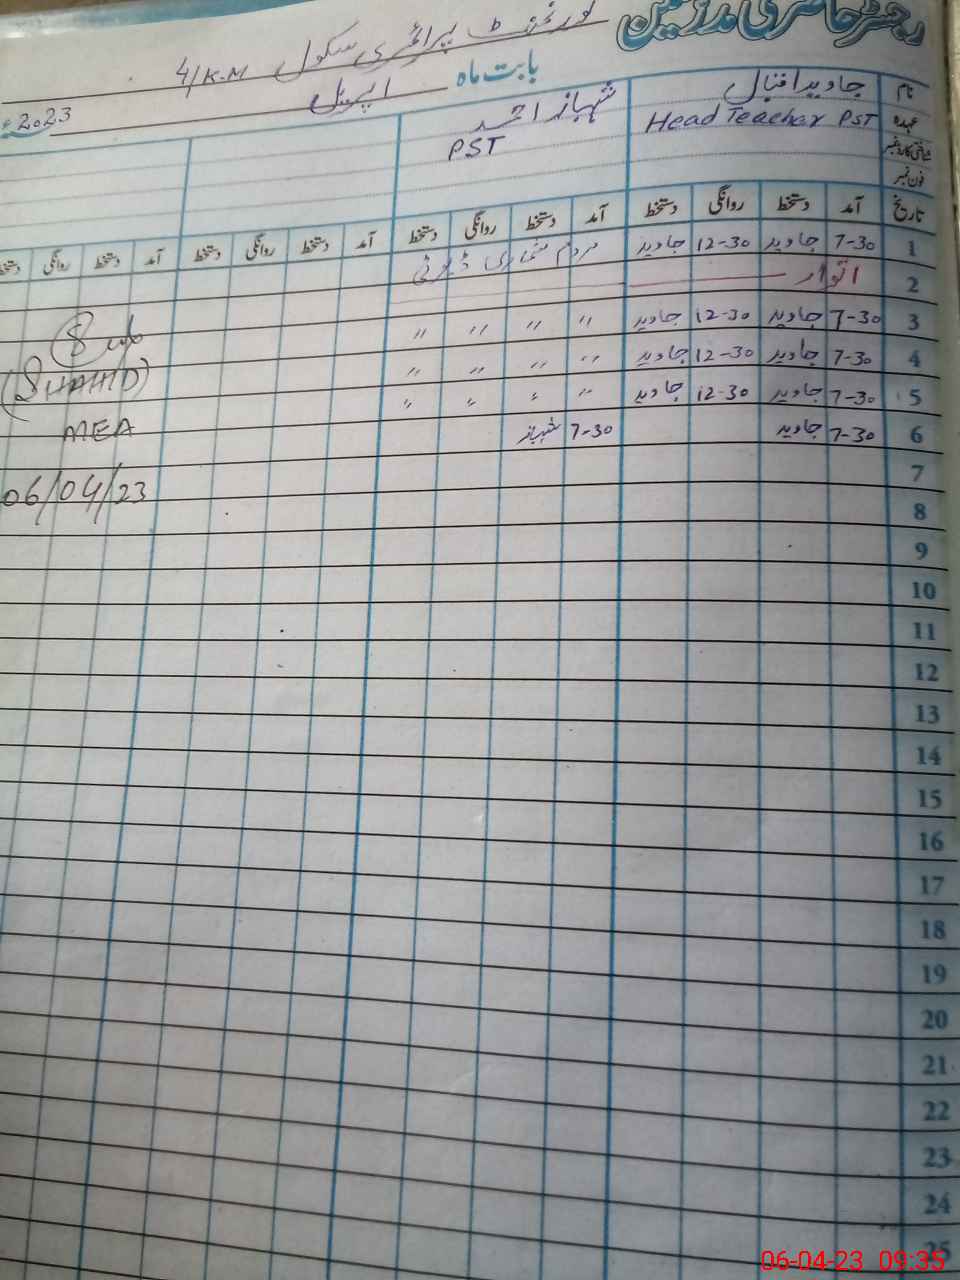 رجسٹر حاضری مدرسین
گورنمنٹ پرائمری سکول 4/K.M
بابت ماہ اپریل 2023ء
نام جاوید اقبال شہباز احمد
عہدہ Head Teacher PST PST
شناختی کارڈ نمبر
فون نمبر
تاریخ آمد دستخط روانگی دستخط آمد دستخط روانگی دستخط آمد دستخط روانگی دستخط آمد دستخط روانگی دستخط
1 7-30 جاوید 12-30 جاوید مردم شماری ڈیوٹی
2 اتوار
3 7-30 جاوید 12-30 جاوید 〃 〃 〃 〃
4 7-30 جاوید 12-30 جاوید 〃 〃 〃 〃
5 7-30 جاوید 12-30 جاوید 〃 〃 〃 〃
6 7-30 جاوید 7-30 شہباز
(SHAHID)
MEA
06/04/23
7
8
9
10
11
12
13
14
15
16
17
18
19
20
21
22
23
24
25
06-04-23 09:35